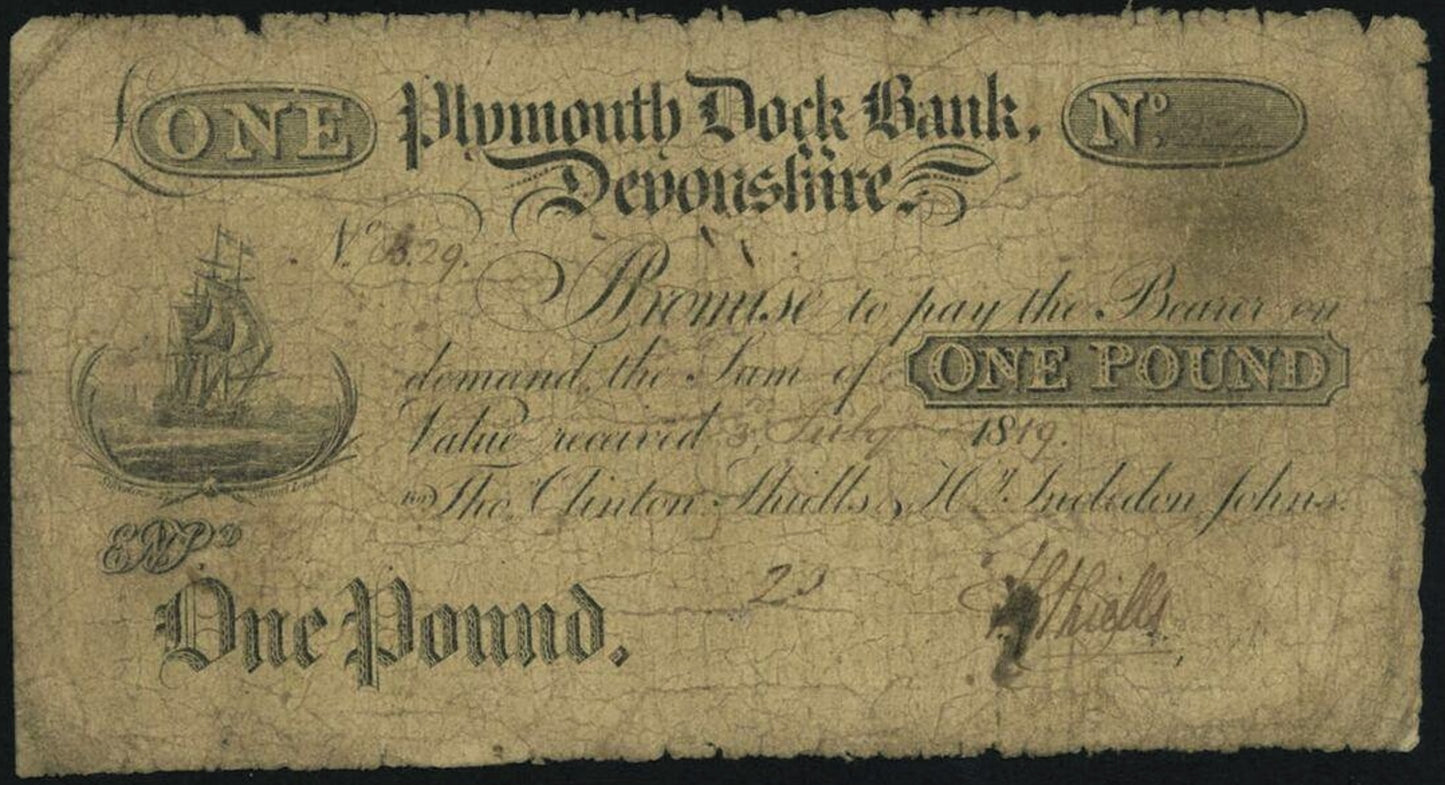 ONE Plymouth Dock Bank, Nº
Devonshire
Nº 29.
I Promise to pay the Bearer on
demand, the Sum of ONE POUND
Value received 3 July 1819.
For Thoˢ Clinton Shiells & Hʸ Incledon Johns.
Entᵈ
23
Shiells
One Pound.